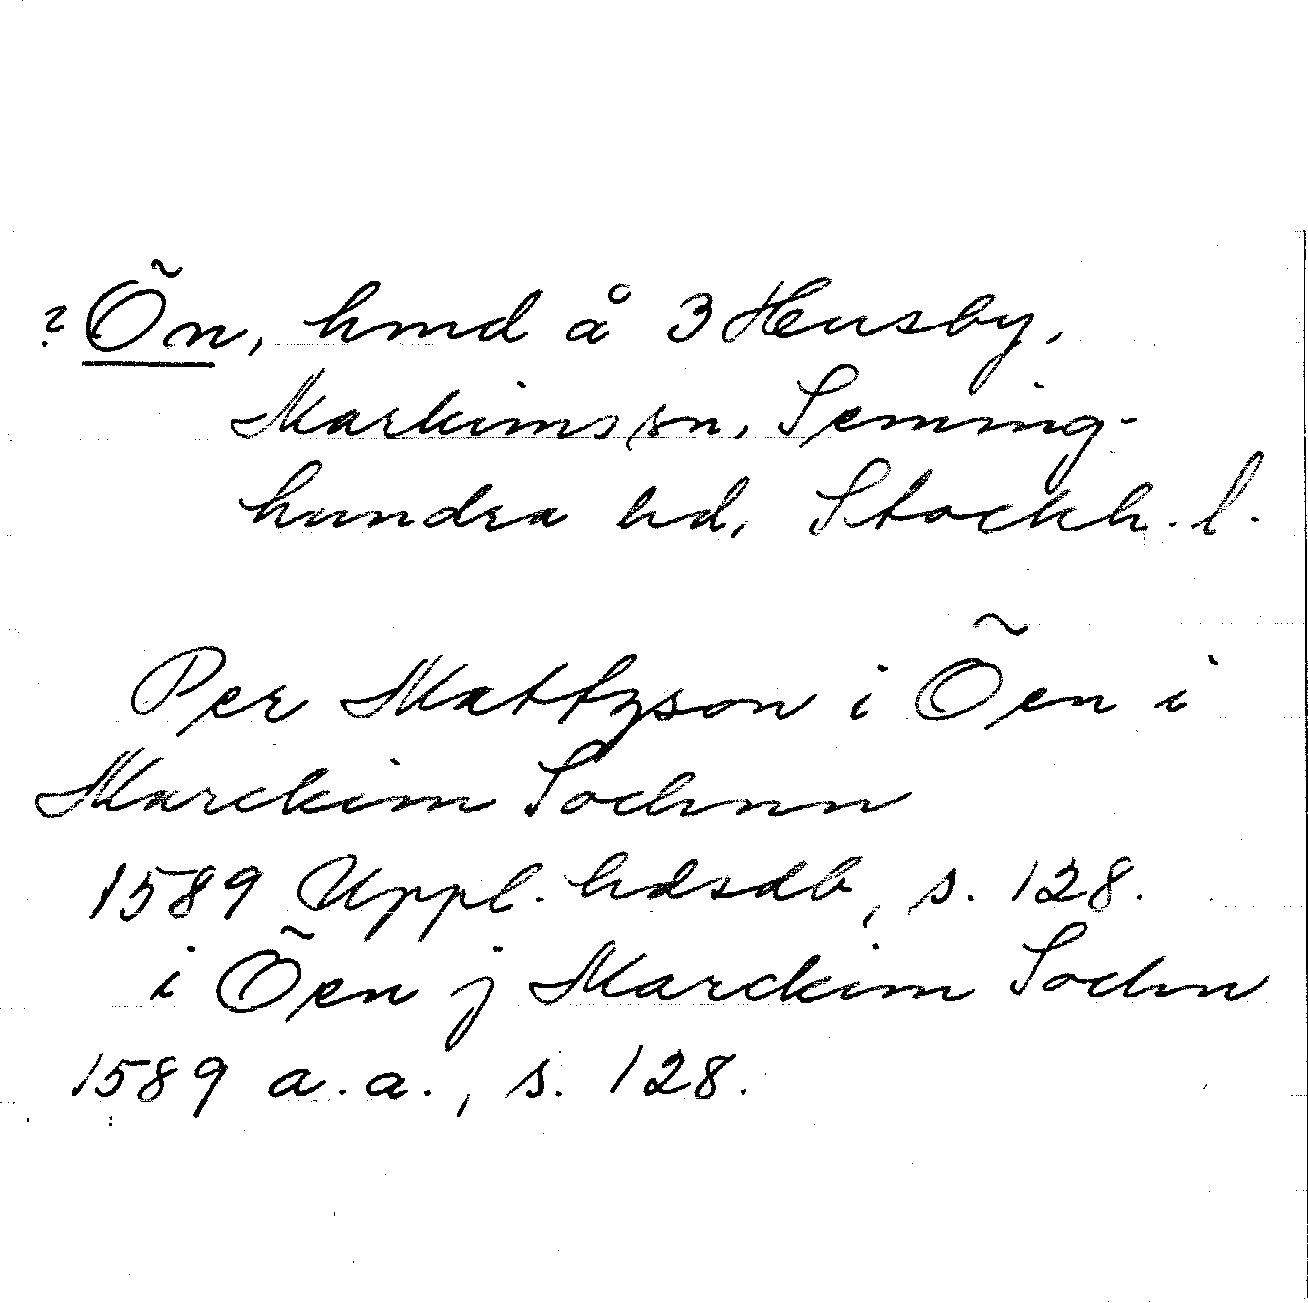 ? Ön, hmd å 3 Husby,
Markims sn, Seming-
hundra hd, Stockh. l.
Per Mattzson i Öen i
Marckim Sochnn
1589 Uppl. hdsdb, s. 128.
i Öen j Marckim Sochn
1589 a.a., s. 128.